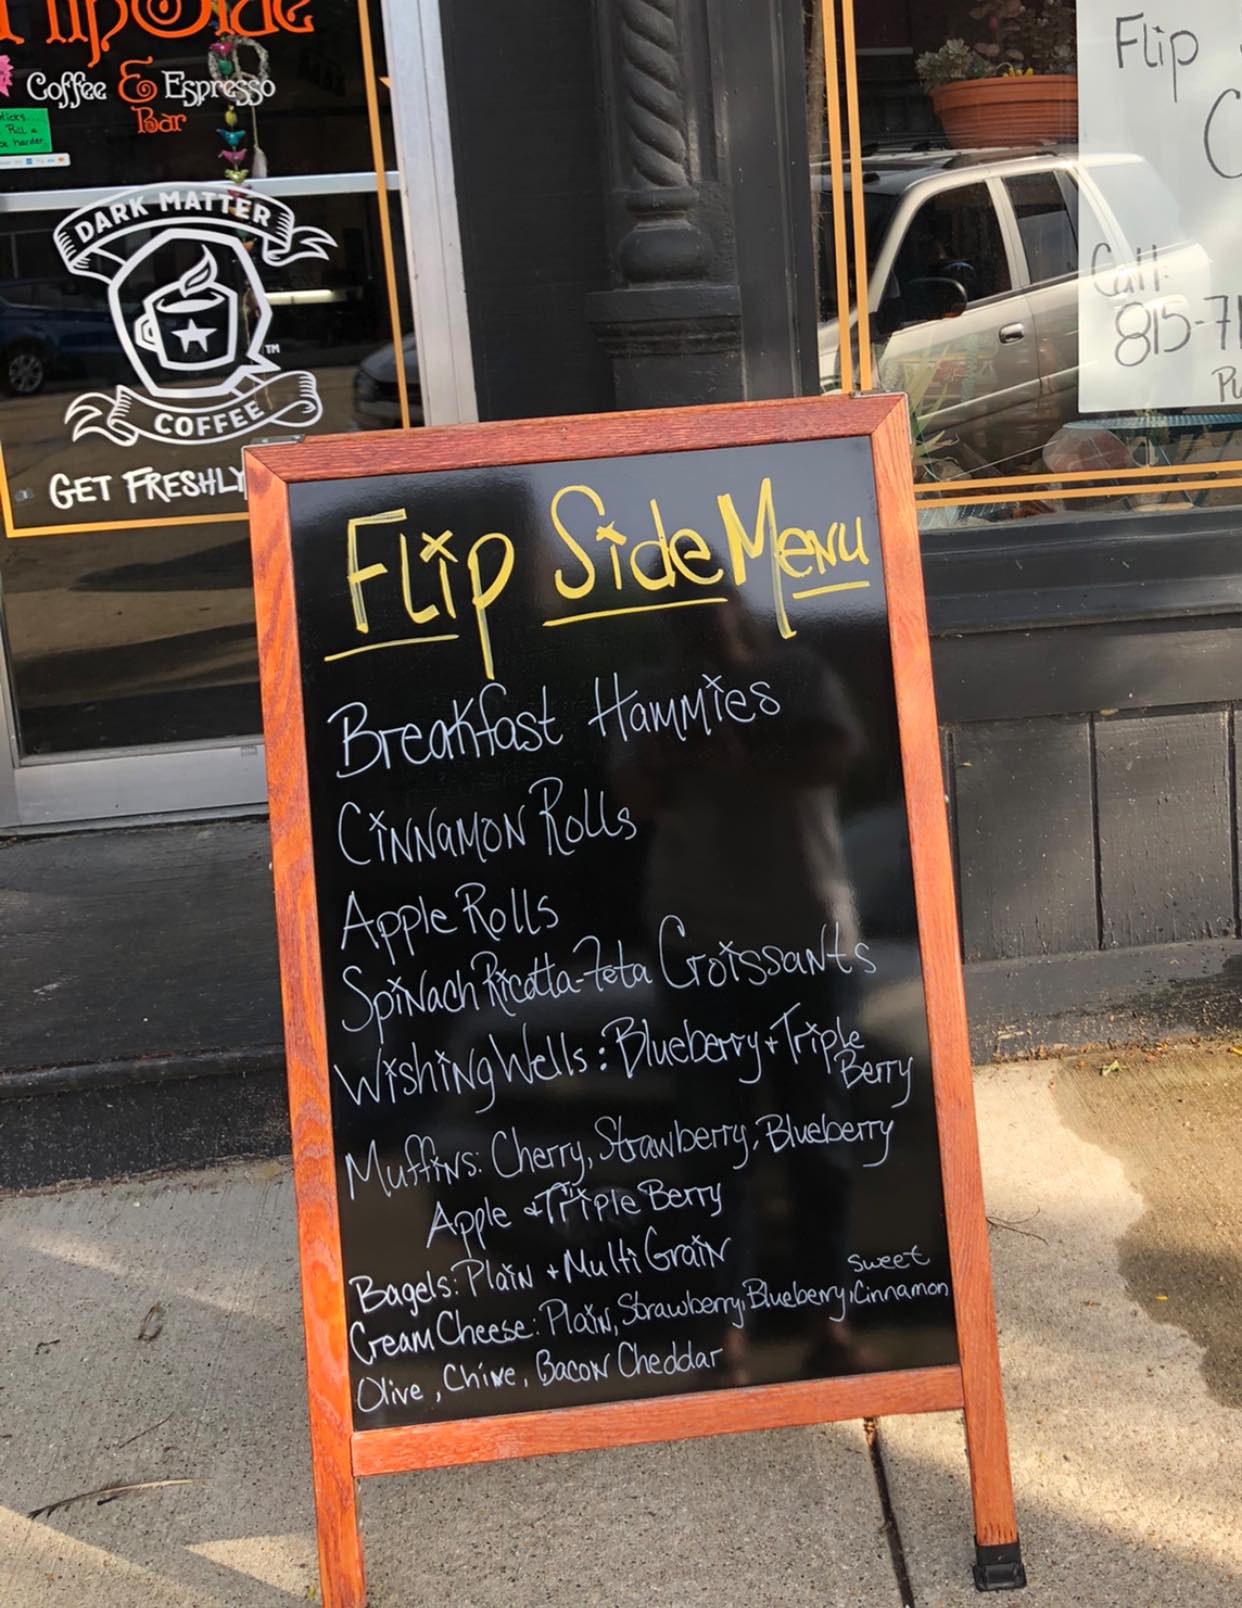 Flip Side
Coffee & Espresso
Bar
Pull
be harder
DARK MATTER
TM
COFFEE
GET FRESHLY
Flip
Call:
815-71
Flip Side Menu
Breakfast Hammies
Cinnamon Rolls
Apple Rolls
Spinach Ricotta-Feta Croissants
Wishing Wells: Blueberry + Triple
Berry
Muffins: Cherry, Strawberry, Blueberry
Apple + Triple Berry
Bagels: Plain + Multi Grain
sweet
Cream Cheese: Plain, Strawberry, Blueberry, Cinnamon
Olive, Chive, Bacon Cheddar